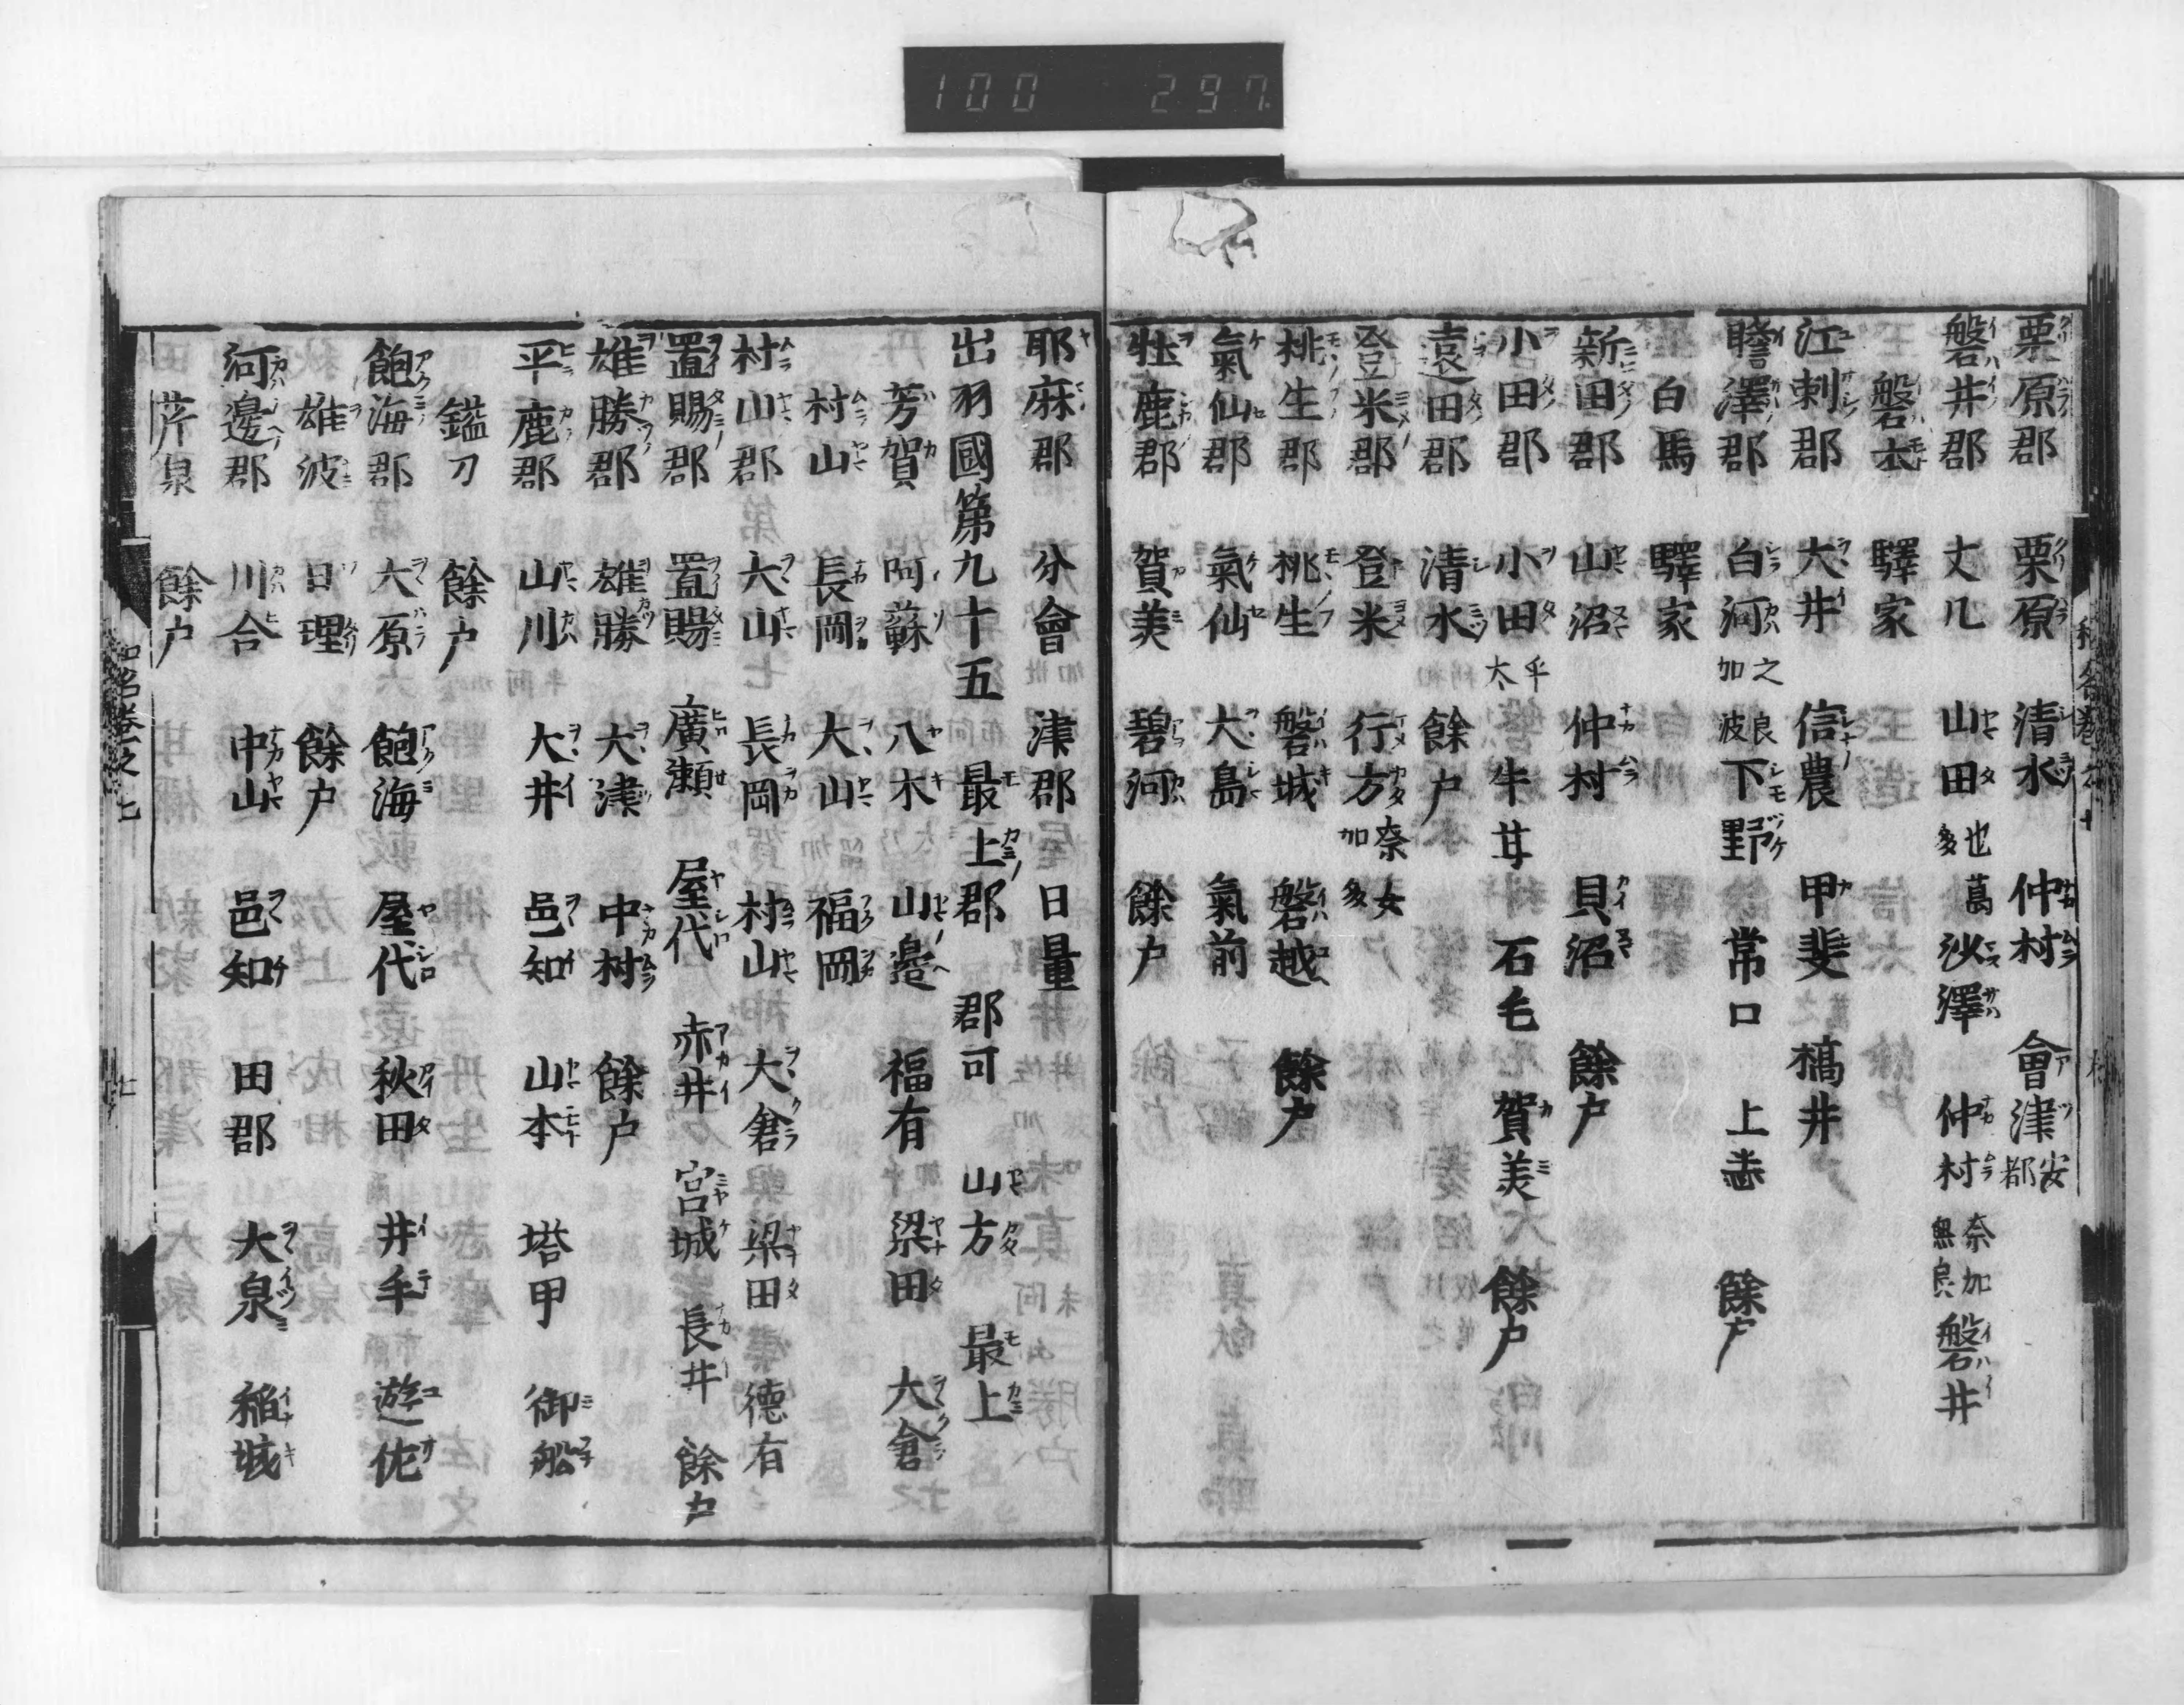 栗原郡 栗原 清水 仲村 會津安都
磐井郡 丈几 山田也多 葛 沙澤 仲村奈加無良 磐井
磐本 驛家
江刺郡 大井 信農 甲斐 槗井
膽澤郡 白河之加良波 下野 常口 上 餘戸
白馬 驛家
新田郡 山沼 仲村 貝沼 餘戸
小田郡 小田乎太 牛甘 石毛 賀美 餘戸
遠田郡 清水 餘戸
登米郡 登米 行方奈女加多
桃生郡 桃生 磐城 磐越 餘戸
氣仙郡 氣仙 大島 氣前
牡鹿郡 賀美 碧河 餘戸
耶麻郡 分會 津郡 日量
出羽國第九十五 最上郡 郡可 山方 最上
芳賀 阿蘇 八木 山邉 福有 梁田 大倉
村山 長岡 大山 福岡
村山郡 大山 長岡 村山 大倉 梁田 德有
置賜郡 置賜 廣瀬 屋代 赤井 宮城 長井 餘戸
雄勝郡 雄勝 大津 中村 餘戸
平鹿郡 山川 大井 邑知 山本 塔甲 御船
鎰刀 餘戸
飽海郡 大原 飽海 屋代 秋田 井手 遊佐
雄波 日理 餘戸
河邊郡 川合 中山 邑知 田郡 大泉 稲城
芹泉 餘戸
100 297